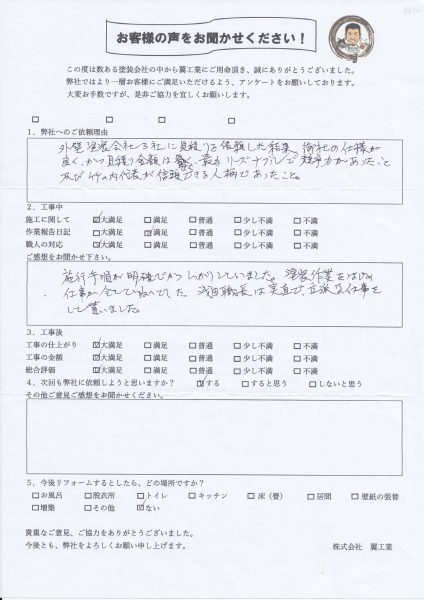 お客様の声をお聞かせください！
この度は数ある塗装会社の中から翼工業にご用命頂き、誠にありがとうございました。
弊社ではより一層お客様にご満足いただけるよう、アンケートをお願いしております。
大変お手数ですが、是非ご協力を宜しくお願いします。
□ □ □ □
1．弊社へのご依頼理由
外壁塗装会社 社に見積りを依頼した結果、御社の仕様が
良く、かつ見積り金額は 最もリーズナブルで競争力があったこと
及び竹の内代表が信頼できる人柄であったこと。
2．工事中
施工に関して ☑大満足 □満足 □普通 □少し不満 □不満
作業報告日記 □大満足 ☑満足 □普通 □少し不満 □不満
職人の対応 ☑大満足 □満足 □普通 □少し不満 □不満
ご感想をお聞かせ下さい。
施行手順が明確でしっかりしていました。塗装作業をはじめ
仕事が全てていねいでした。浅田職長は実直で、立派な仕事を
して貰いました。
3．工事後
工事の仕上がり ☑大満足 □満足 □普通 □少し不満 □不満
工事の金額 ☑大満足 □満足 □普通 □少し不満 □不満
総合評価 ☑大満足 □満足 □普通 □少し不満 □不満
4．次回も弊社に依頼しようと思いますか？ ☑する □すると思う □しないと思う
その他ご意見ご感想をお聞かせください。
5．今後リフォームするとしたら、どの場所ですか？
□お風呂 □脱衣所 □トイレ □キッチン □床（畳） □居間 □壁紙の張替
□増築 □その他 ☑ない
貴重なご意見、ご協力をありがとうございました。
今後とも、弊社をよろしくお願い申し上げます。 株式会社 翼工業